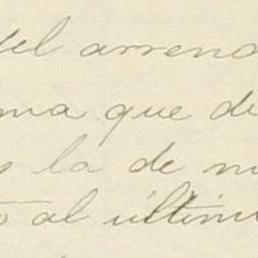 del arrend
ma que de
s la de m
o al último